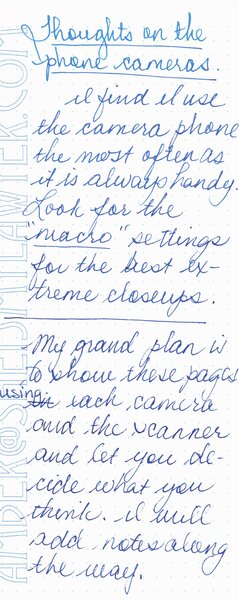 Thoughts on the
phone cameras.
I find I use
the camera phone
the most often as
it is always handy.
Look for the
"macro" settings
for the best ex-
treme closeups.
My grand plan is
to show these pages
using each camera
and the scanner
and let you de-
cide what you
think. I will
add notes along
the way.